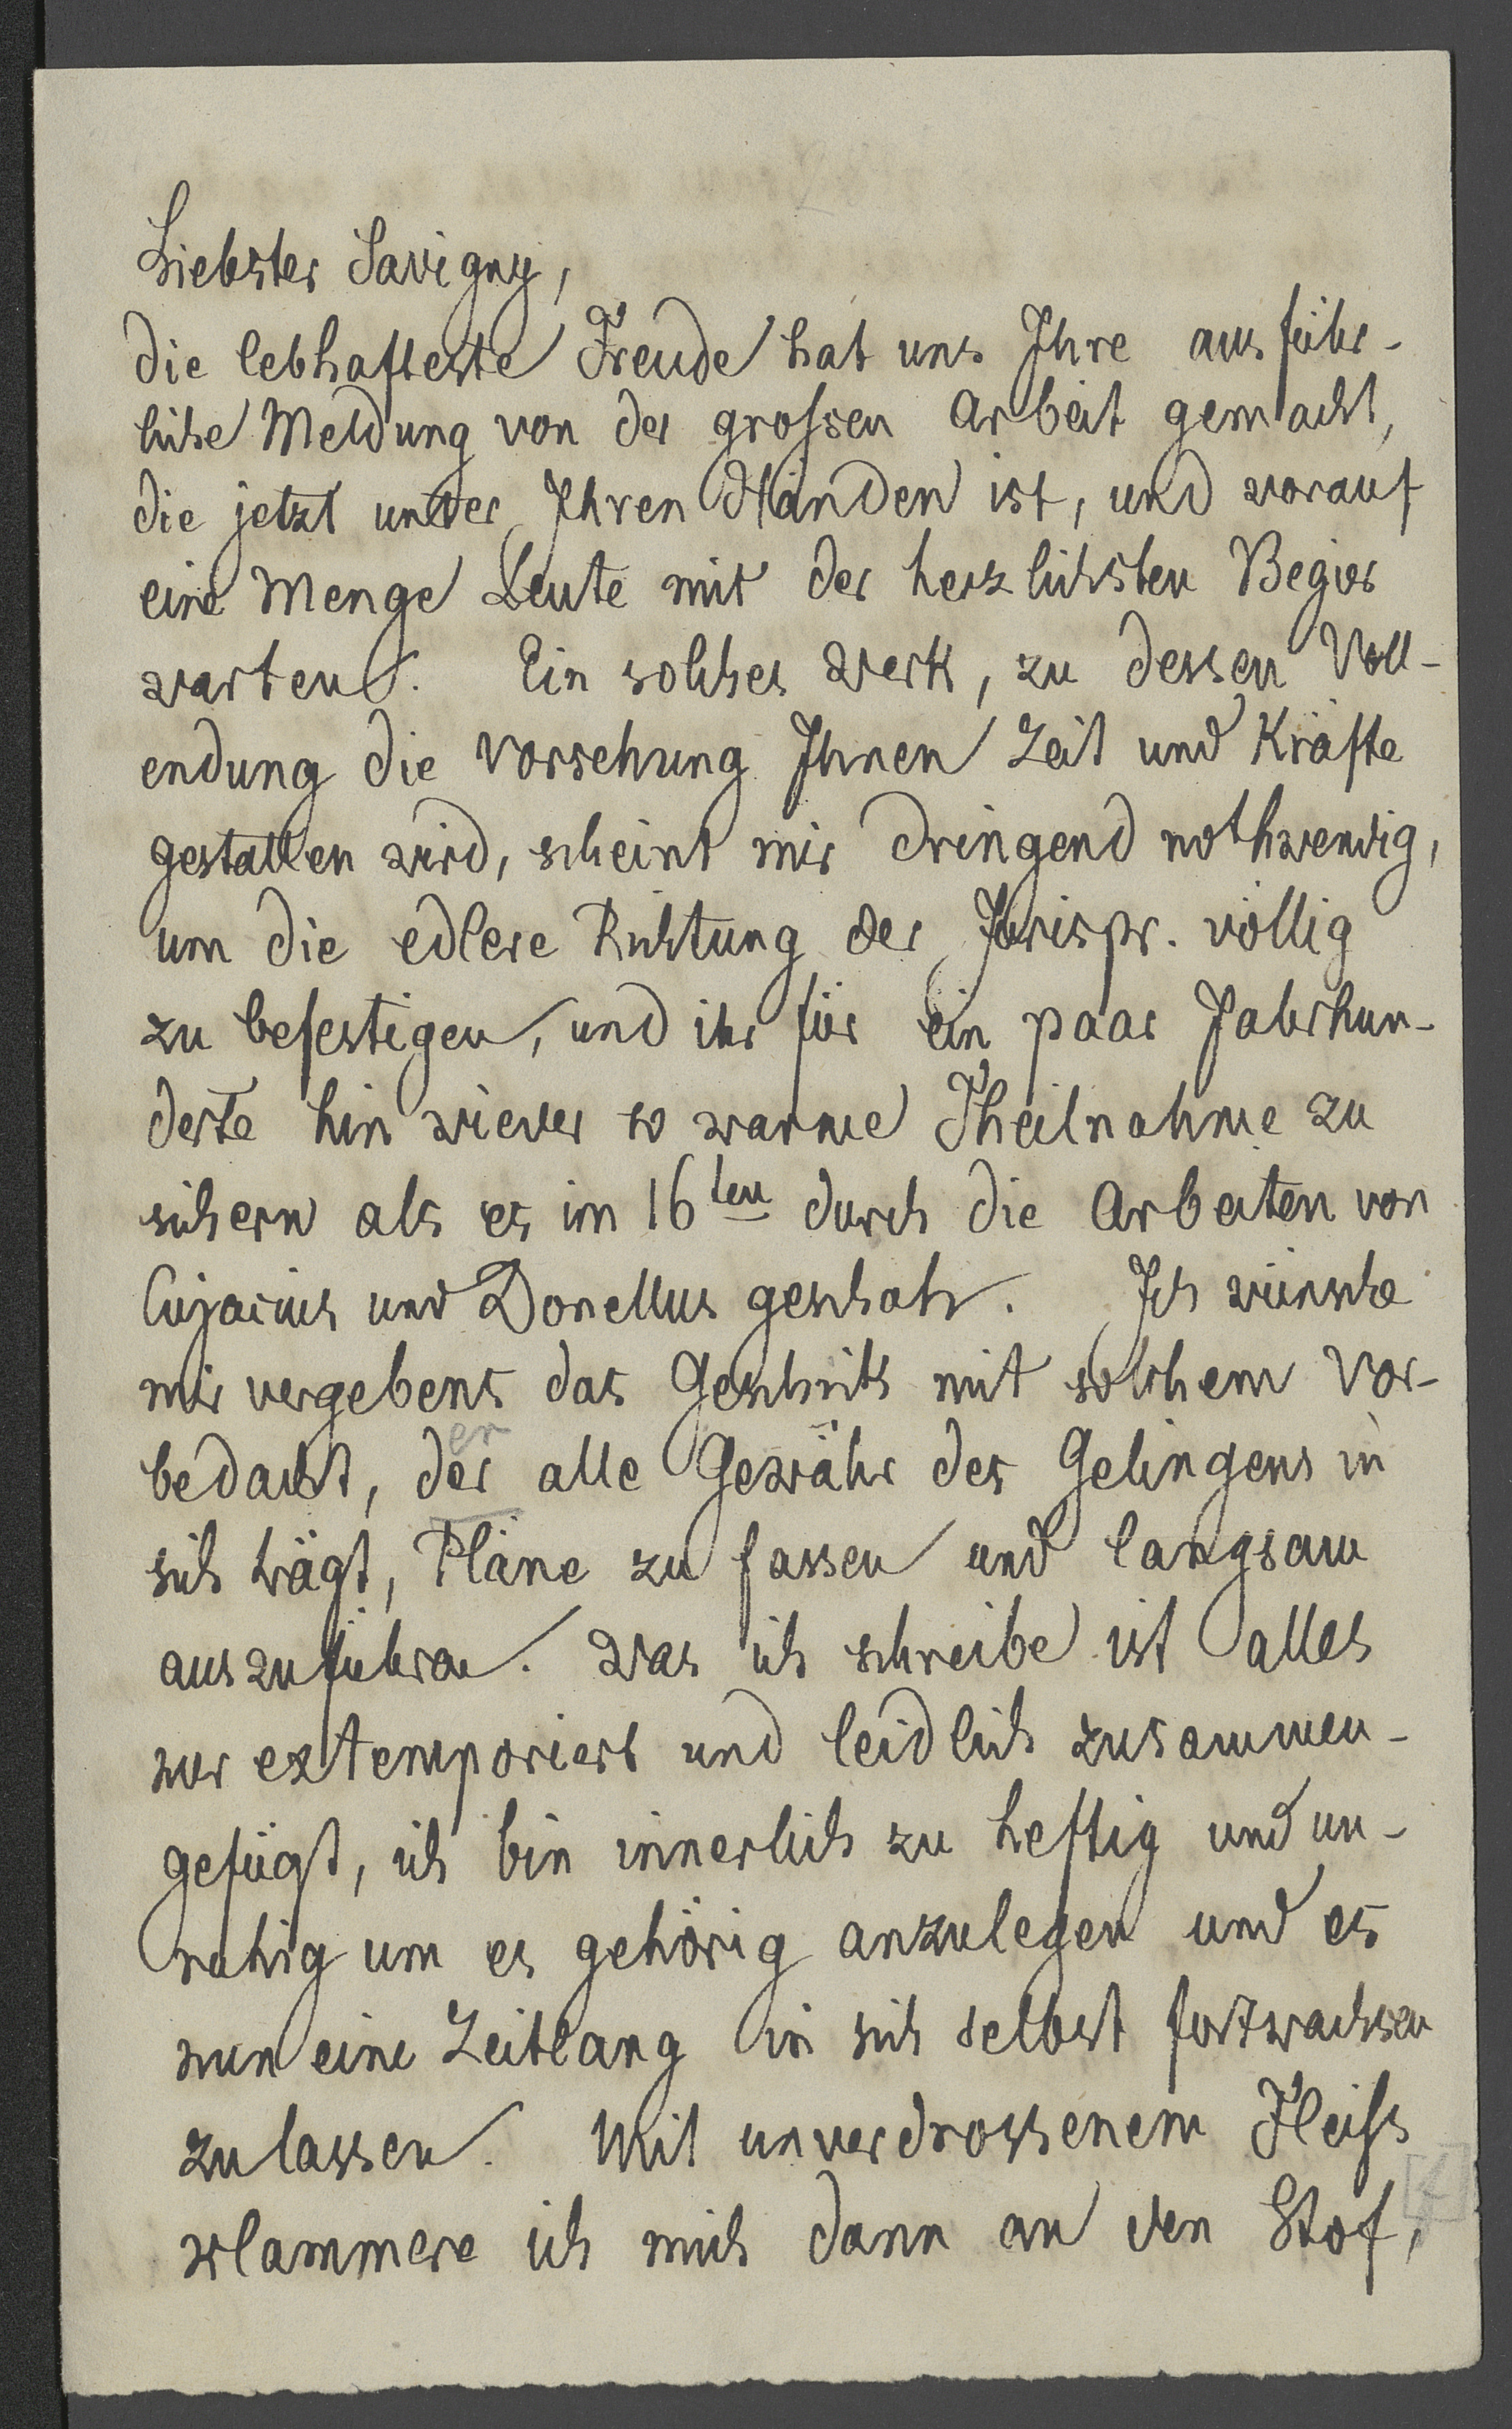 Liebster Savigny,
die lebhafteste Freude hat uns Ihre ausführ-
liche Meldung von der grossen Arbeit gemacht,
die jetzt unter Ihren Händen ist, und worauf
eine Menge Leute mit der herzlichsten Begier
warten. Ein solches Werk, zu dessen Voll-
endung die Vorsehung Ihnen Zeit und Kräfte
gestatten wird, scheint mir dringend nothwendig,
um die edlere Richtung der Jurispr. völlig
zu befestigen, und ihr für ein paar Jahrhun-
derte hin wieder so warme Theilnahme zu
sichern als es im 16ten durch die Arbeiten von
Cujacius und Donellus geschah. Ich wünsche
mir vergebens das Geschick mit solchem Vor-
bedacht, der alle Gewähr des Gelingens in
er
sich trägt, Pläne zu fassen und langsam
auszuführen. Was ich schreibe ist alles
nur extemporiert und leidlich zusammen-
gefügt, ich bin innerlich zu heftig und un-
ruhig um es gehörig anzulegen und es
nun eine Zeitlang in sich selbst fortwachsen
zu lassen. Mit unverdrossenem Fleiss
klammere ich mich dann an den Stof,